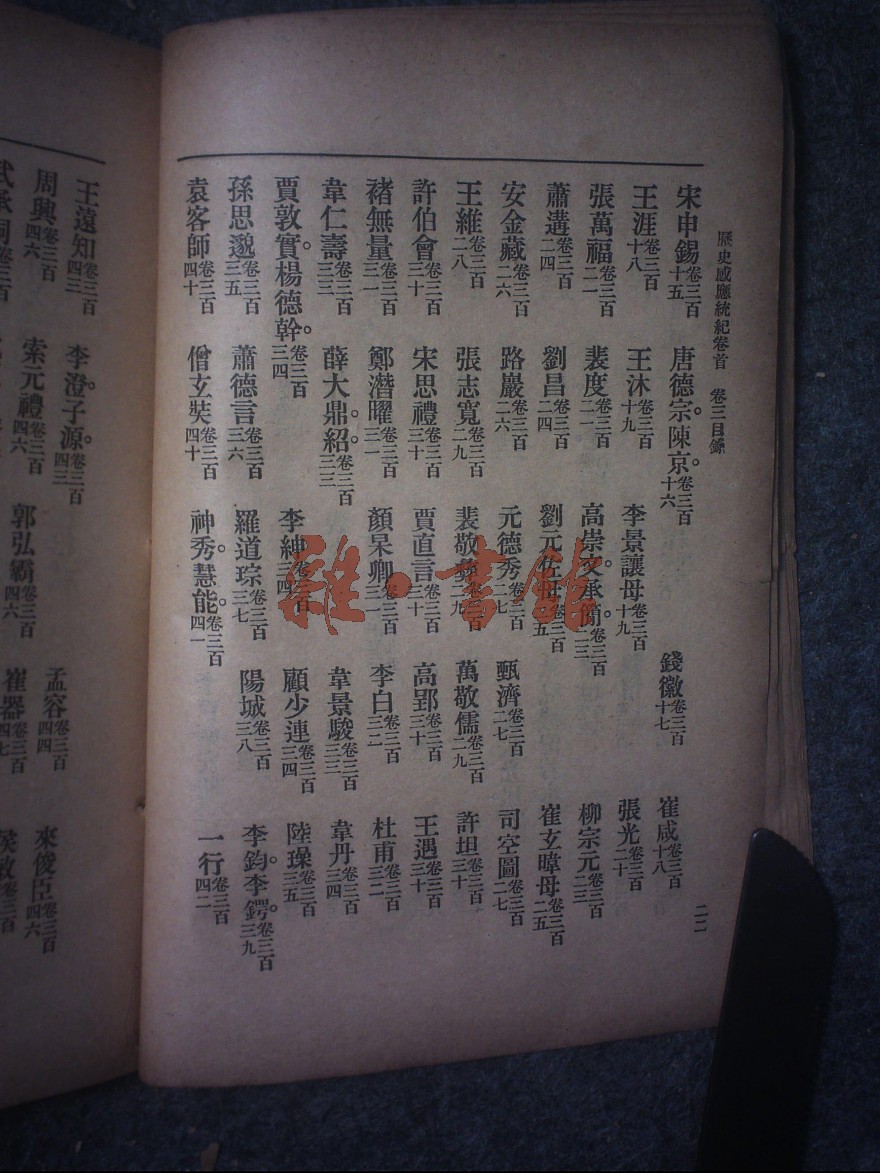 歷史感應統紀卷首　卷三目錄　二二
宋申錫卷三百十五　唐德宗。陳京。卷三百十六　錢徽卷三百十七　崔咸卷三百十八
王涯卷三百十八　王沐卷三百十九　李景讓母卷三百十九　張光卷三百二十
張萬福卷三百二一　裴度卷三百二一　高崇文。承簡。卷三百二三　柳宗元卷三百二三
蕭遘卷三百二四　劉昌卷三百二四　劉元佐母卷三百二五　崔玄暐母卷三百二五
安金藏卷三百二六　路巖卷三百二六　元德秀卷三百二七　甄濟卷三百二七　司空圖卷三百二七
王維卷三百二八　張志寬卷三百二九　裴敬彝卷三百二九　萬敬儒卷三百二九　許坦卷三百三十
許伯會卷三百三十　宋思禮卷三百三十　賈直言卷三百三十　高郢卷三百三十　王遇卷三百三十
褚無量卷三百三一　鄭潛曜卷三百三一　顏杲卿卷三百三一　李白卷三百三二　杜甫卷三百三二
韋仁壽卷三百三三　薛大鼎。紹。卷三百三三　韋景駿卷三百三三　韋丹卷三百三四
賈敦實。楊德幹。卷三百三四　李紳卷三百三四　顧少連卷三百三四　陸璪卷三百三五
孫思邈卷三百三五　蕭德言卷三百三六　羅道琮卷三百三七　陽城卷三百三八　李鈞。李鍔。卷三百三九
袁客師卷三百四十　僧玄奘卷三百四十　神秀。慧能。卷三百四一　一行卷三百四二
王遠知卷三百四三　李澄。子源。卷三百四三　孟容卷三百四四　來俊臣卷三百四六
周興卷三百四六　索元禮卷三百四六　郭弘霸卷三百四六　崔器卷三百四七
武承嗣卷三百
雜·書館